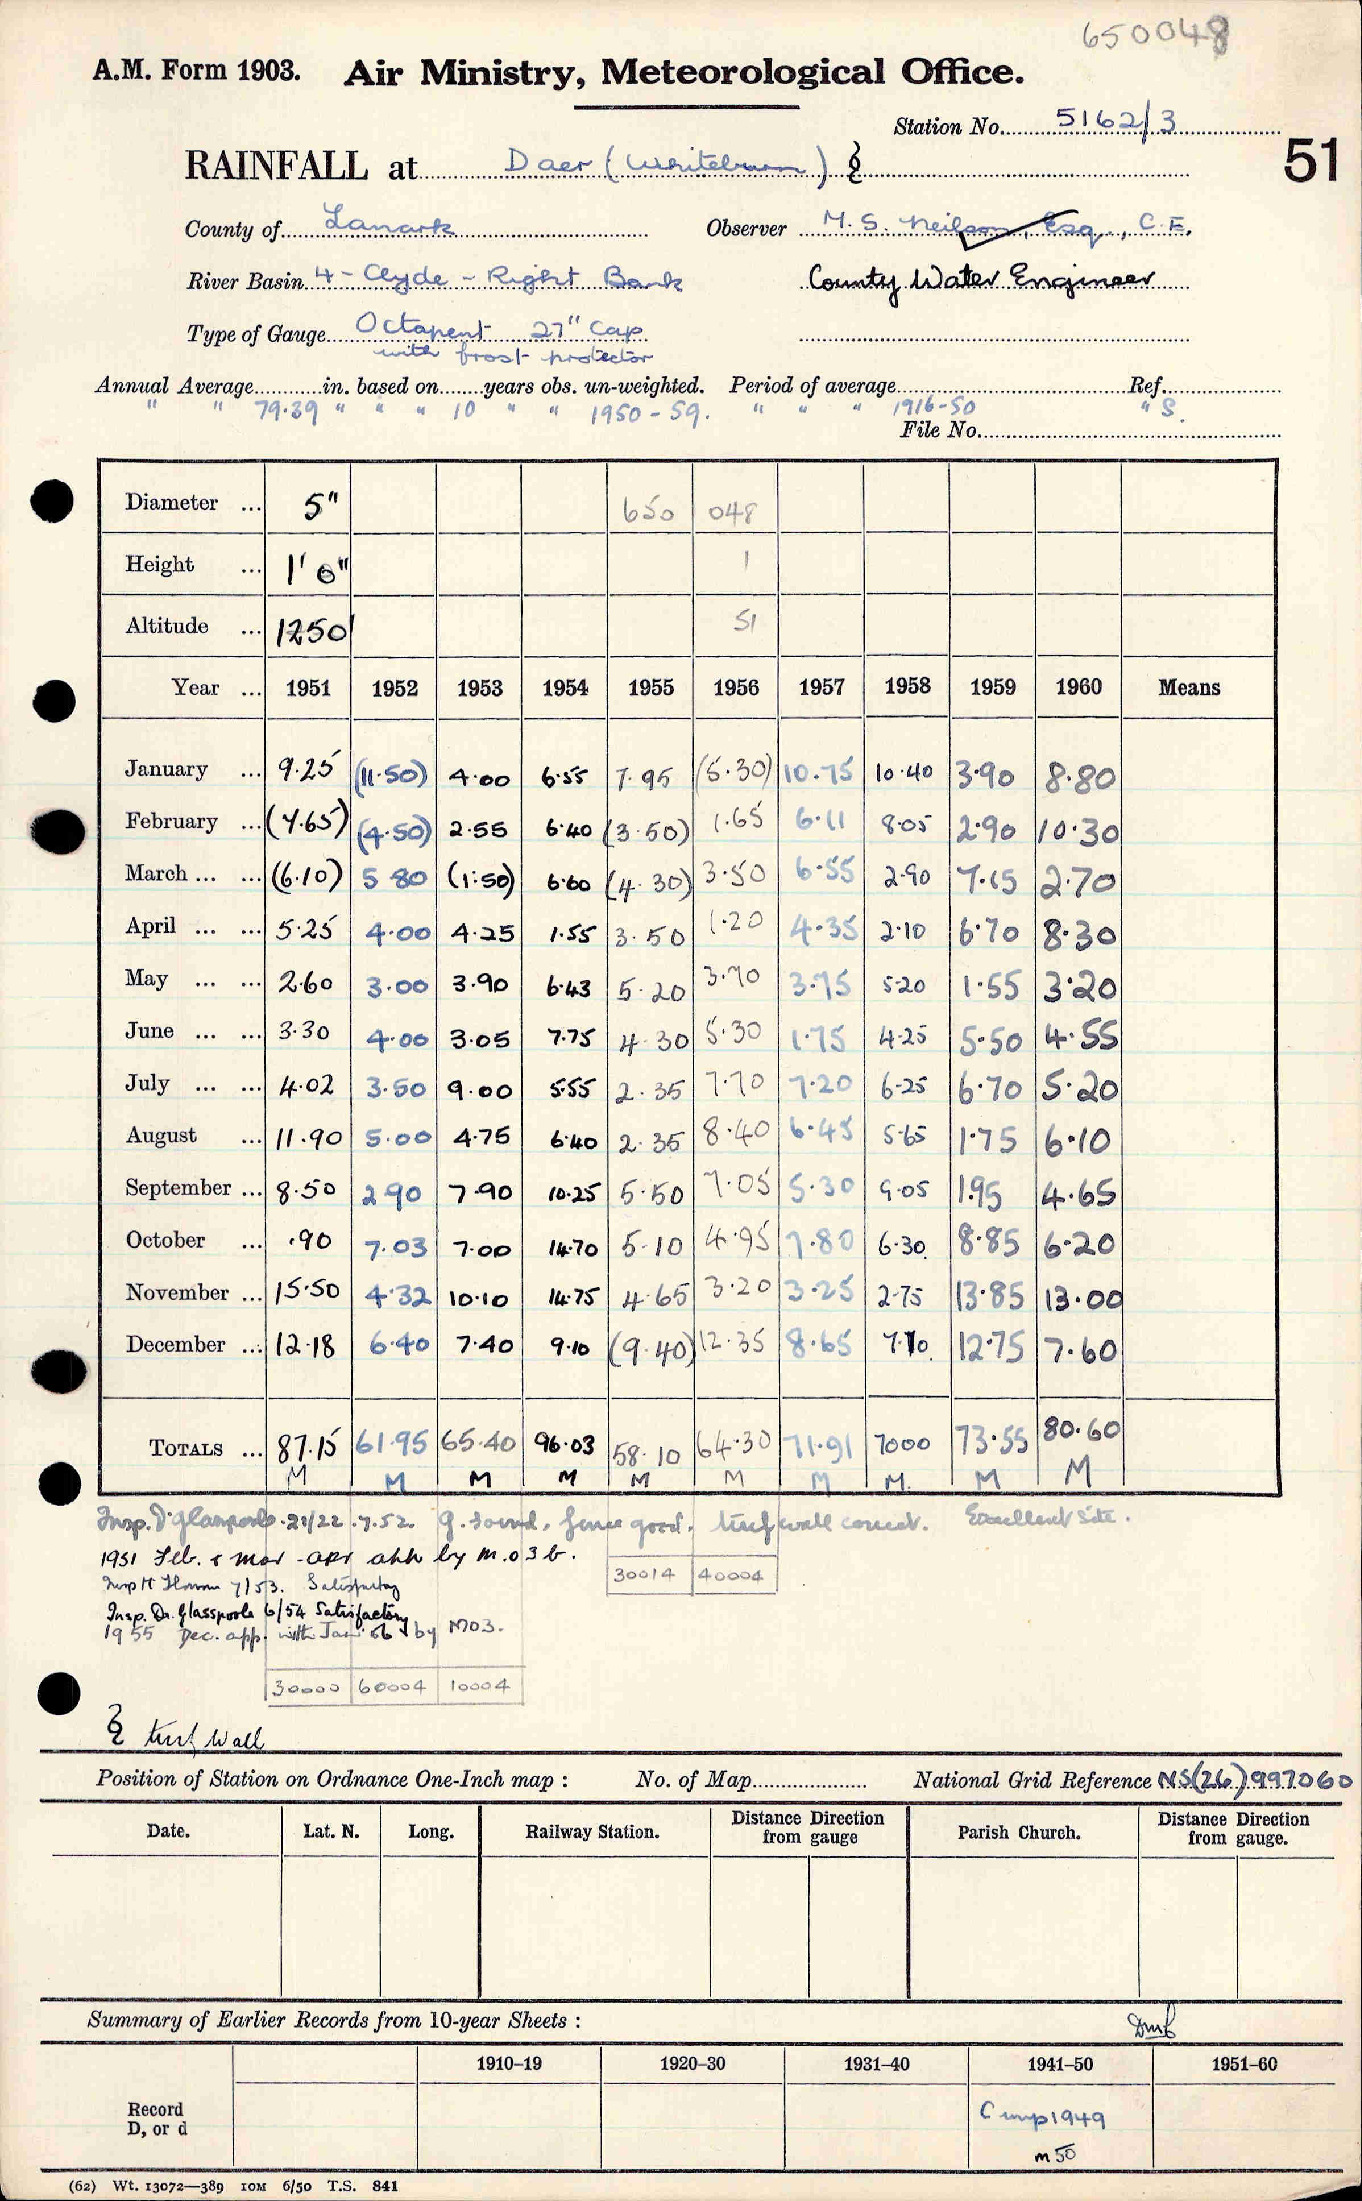 650048
A.M. Form 1903. Air Ministry, Meteorological Office.
Station No. 5162/3
51
RAINFALL at Daer (Whiteburn) §
County of Lanark Observer M. S. Neilson, Esq., C.E.
River Basin 4 - Clyde - Right Bank County Water Engineer
Type of Gauge Octapent 27" Cap
with frost protector
Annual Average in. based on years obs. un-weighted. Period of average Ref.
" " 79.39 " " " 10 " " 1950-59. " " " 1916-50 " S.
File No.
Diameter ... 5" 650 048
Height ... 1' 0" 1
Altitude ... 1250' 51
Year ... 1951 1952 1953 1954 1955 1956 1957 1958 1959 1960 Means
January ... 9.25 (11.50) 4.00 6.55 7.95 (5.30) 10.75 10.40 3.90 8.80
February ... (7.65) (4.50) 2.55 6.40 (3.50) 1.65 6.11 8.05 2.90 10.30
March ... ... (6.10) 5 80 (1.50) 6.60 (4.30) 3.50 6.55 2.90 7.15 2.70
April ... ... 5.25 4.00 4.25 1.55 3.50 1.20 4.35 2.10 6.70 8.30
May ... ... 2.60 3.00 3.90 6.43 5.20 3.70 3.75 5.20 1.55 3.20
June ... ... 3.30 4.00 3.05 7.75 4.30 5.30 1.75 4.25 5.50 4.55
July ... ... 4.02 3.50 9.00 5.55 2.35 7.70 7.20 6.25 6.70 5.20
August ... 11.90 5.00 4.75 6.40 2.35 8.40 6.45 5.65 1.75 6.10
September ... 8.50 2 90 7.90 10.25 5.50 7.05 5.30 9.05 1.95 4.65
October ... .90 7.03 7.00 14.70 5.10 4.95 7.80 6.30 8.85 6.20
November ... 15.50 4.32 10.10 14.75 4.65 3.20 3.25 2.75 13.85 13.00
December ... 12.18 6.40 7.40 9.10 (9.40) 12.35 8.65 7.10 12.75 7.60
TOTALS ... 87.15 61.95 65.40 96.03 58.10 64.30 71.91 7000 73.55 80.60
M M M M M M M M M M
Insp. Dr Glasspoole 21/22.7.52. G. sound, fence good, turf wall correct. Excellent site.
1951 Feb. & Mar - apr by M.O3b.
30014 40004
Insp 7/53. Satisfactory
Insp. Dr. Glasspoole 6/54 Satisfactory
1955 Dec. app. with Jan 56 by MO3.
30000 60004 10004
§ turf wall
Position of Station on Ordnance One-Inch map : No. of Map National Grid Reference NS(26)997060
Date. Lat. N. Long. Railway Station. Distance Direction from gauge Parish Church. Distance Direction from gauge.
Summary of Earlier Records from 10-year Sheets :
1910–19 1920–30 1931–40 1941–50 1951–60
Record
D, or d
Cump1949
m50
(62) Wt. 13072—389 10M 6/50 T.S. 841